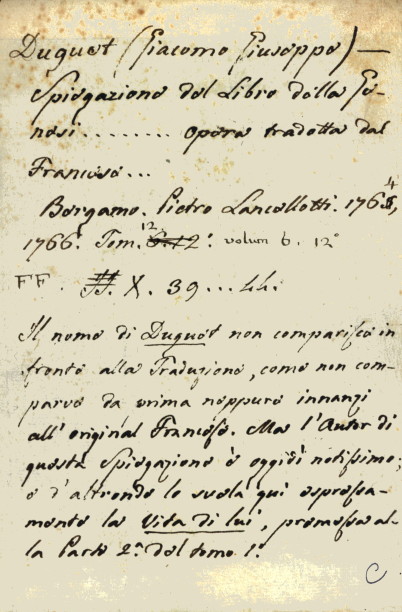 Duguet (Giacomo Giuseppe) —
Spiegazione del Libro della Ge-
nesi......... opera tradotta dal
Francese...
Bergamo. Pietro Lancellotti. 1764,
1766. Tom. 12. volum 6. 12°
FF. X. 39...44.
Il nome di Duguet non comparisce in
fronte alla Traduzione, come non com-
parve da prima neppure innanzi
all' original Francese. Ma l'Autor di
questa Spiegazione è oggidì notissimo;
e d'altronde lo svela qui espressa-
mente la Vita di lui, premessa al-
la Parte 2ª. del tomo 1°.
C